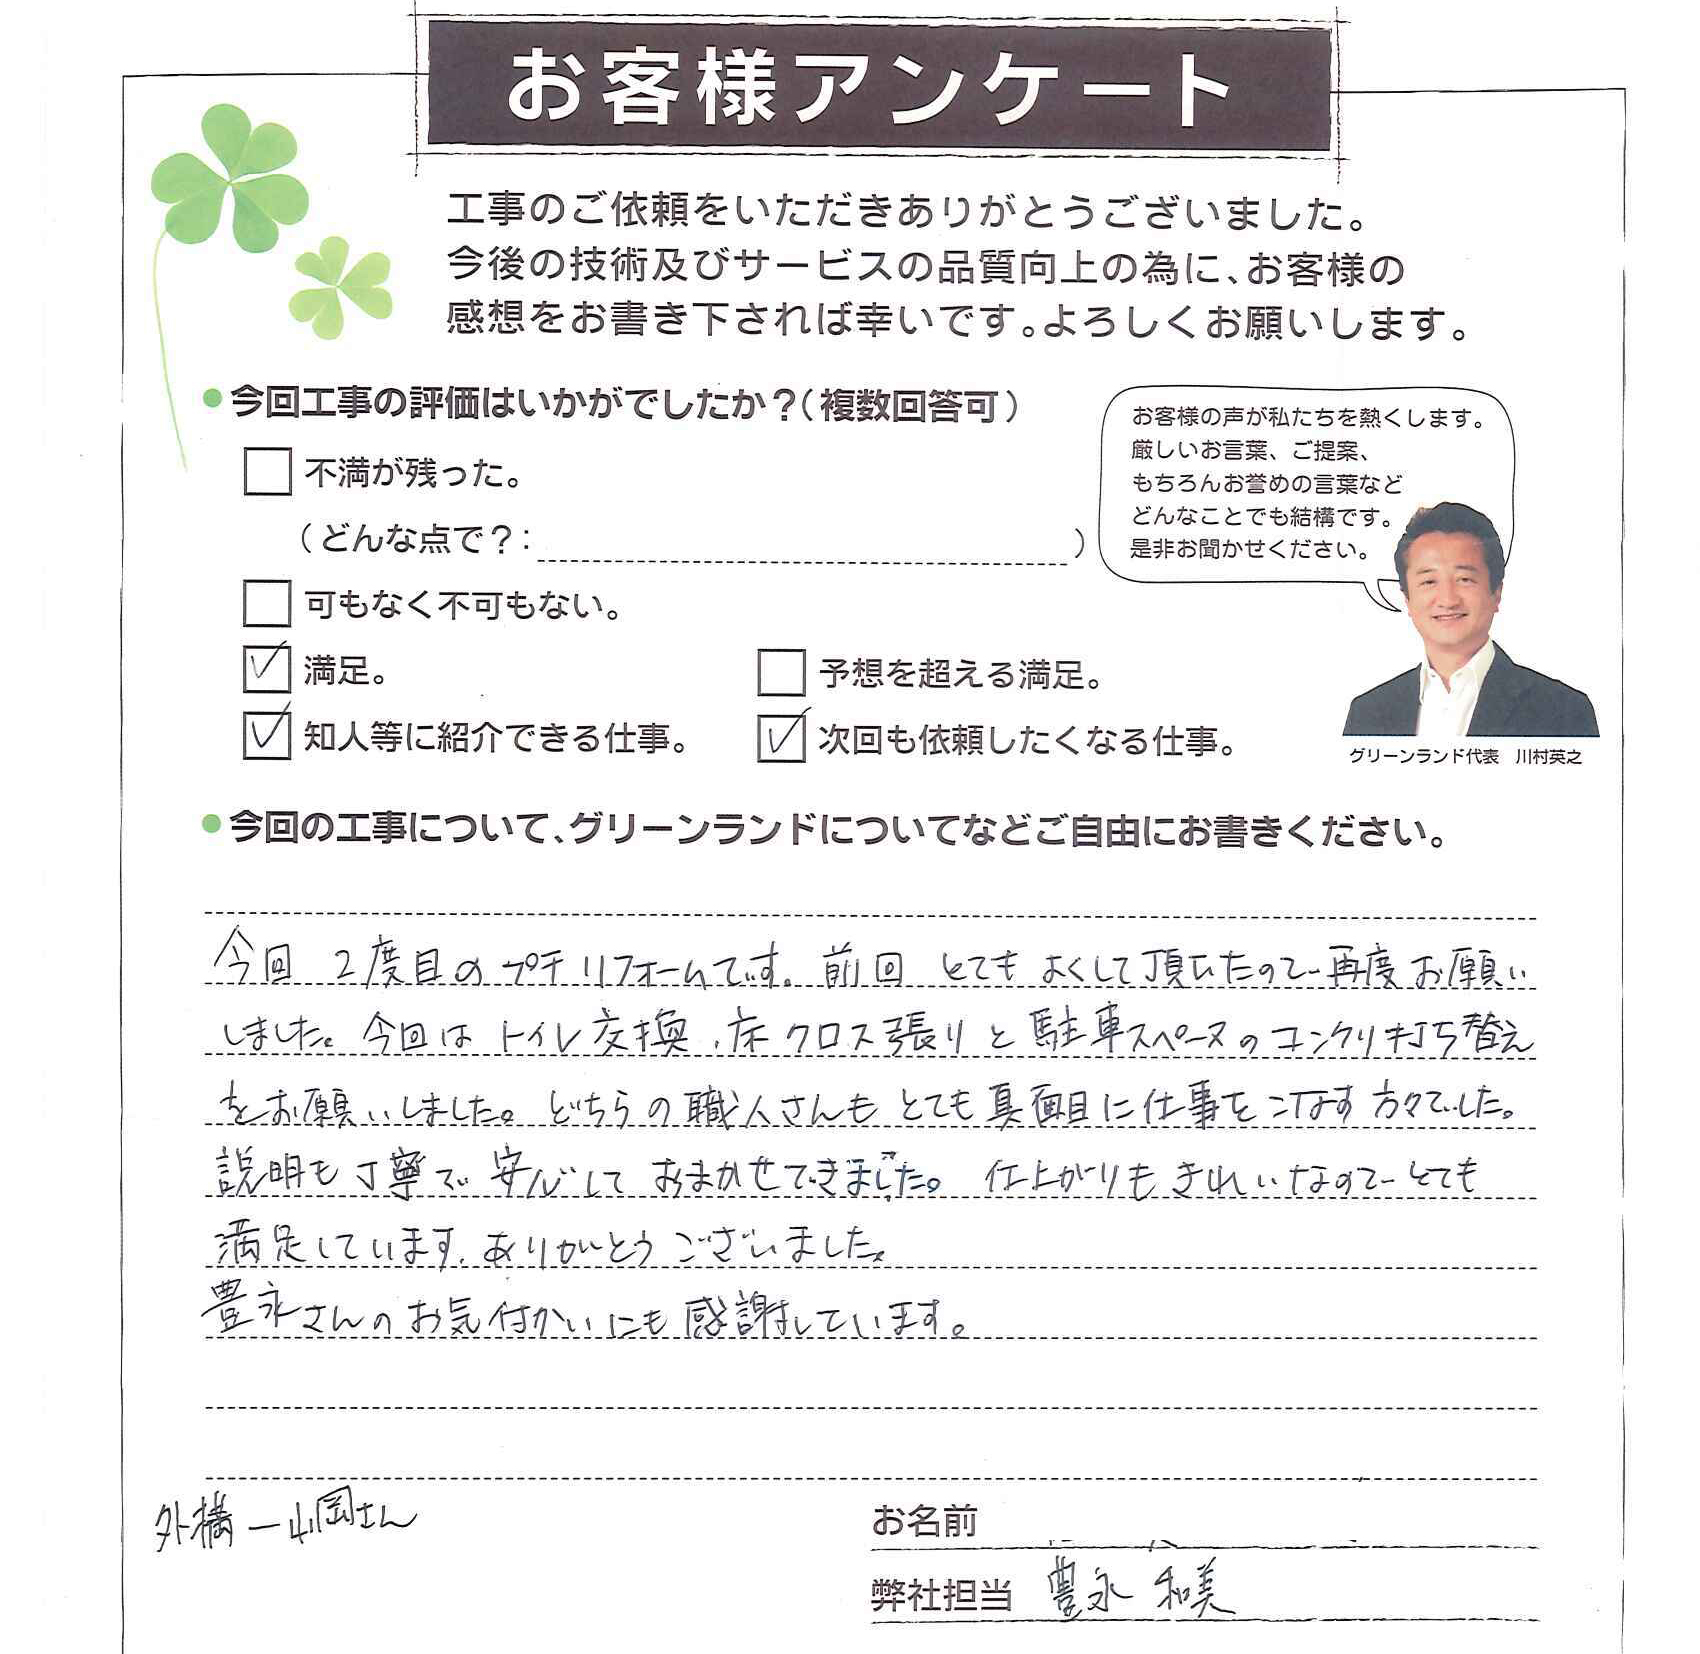 お客様アンケート
工事のご依頼をいただきありがとうございました。
今後の技術及びサービスの品質向上の為に、お客様の
感想をお書き下されば幸いです。よろしくお願いします。
●今回工事の評価はいかがでしたか?(複数回答可)
不満が残った。
(どんな点で?: )
可もなく不可もない。
満足。
予想を超える満足。
知人等に紹介できる仕事。
次回も依頼したくなる仕事。
お客様の声が私たちを熱くします。
厳しいお言葉、ご提案、
もちろんお誉めの言葉など
どんなことでも結構です。
是非お聞かせください。
グリーンランド代表 川村英之
●今回の工事について、グリーンランドについてなどご自由にお書きください。
今回 2度目のプチリフォームです。前回 とてもよくして頂いたので再度お願い
しました。今回は トイレ交換、床クロス張りと駐車スペースのコンクリ打ち替え
をお願いしました。どちらの職人さんもとても真面目に仕事をこなす方々でした。
説明も丁寧で安心しておまかせできました。仕上がりもきれいなのでとても
満足しています。ありがとうございました。
豊永さんのお気付かいにも感謝しています。
外構ー山岡さん
お名前
弊社担当 豊永 和美